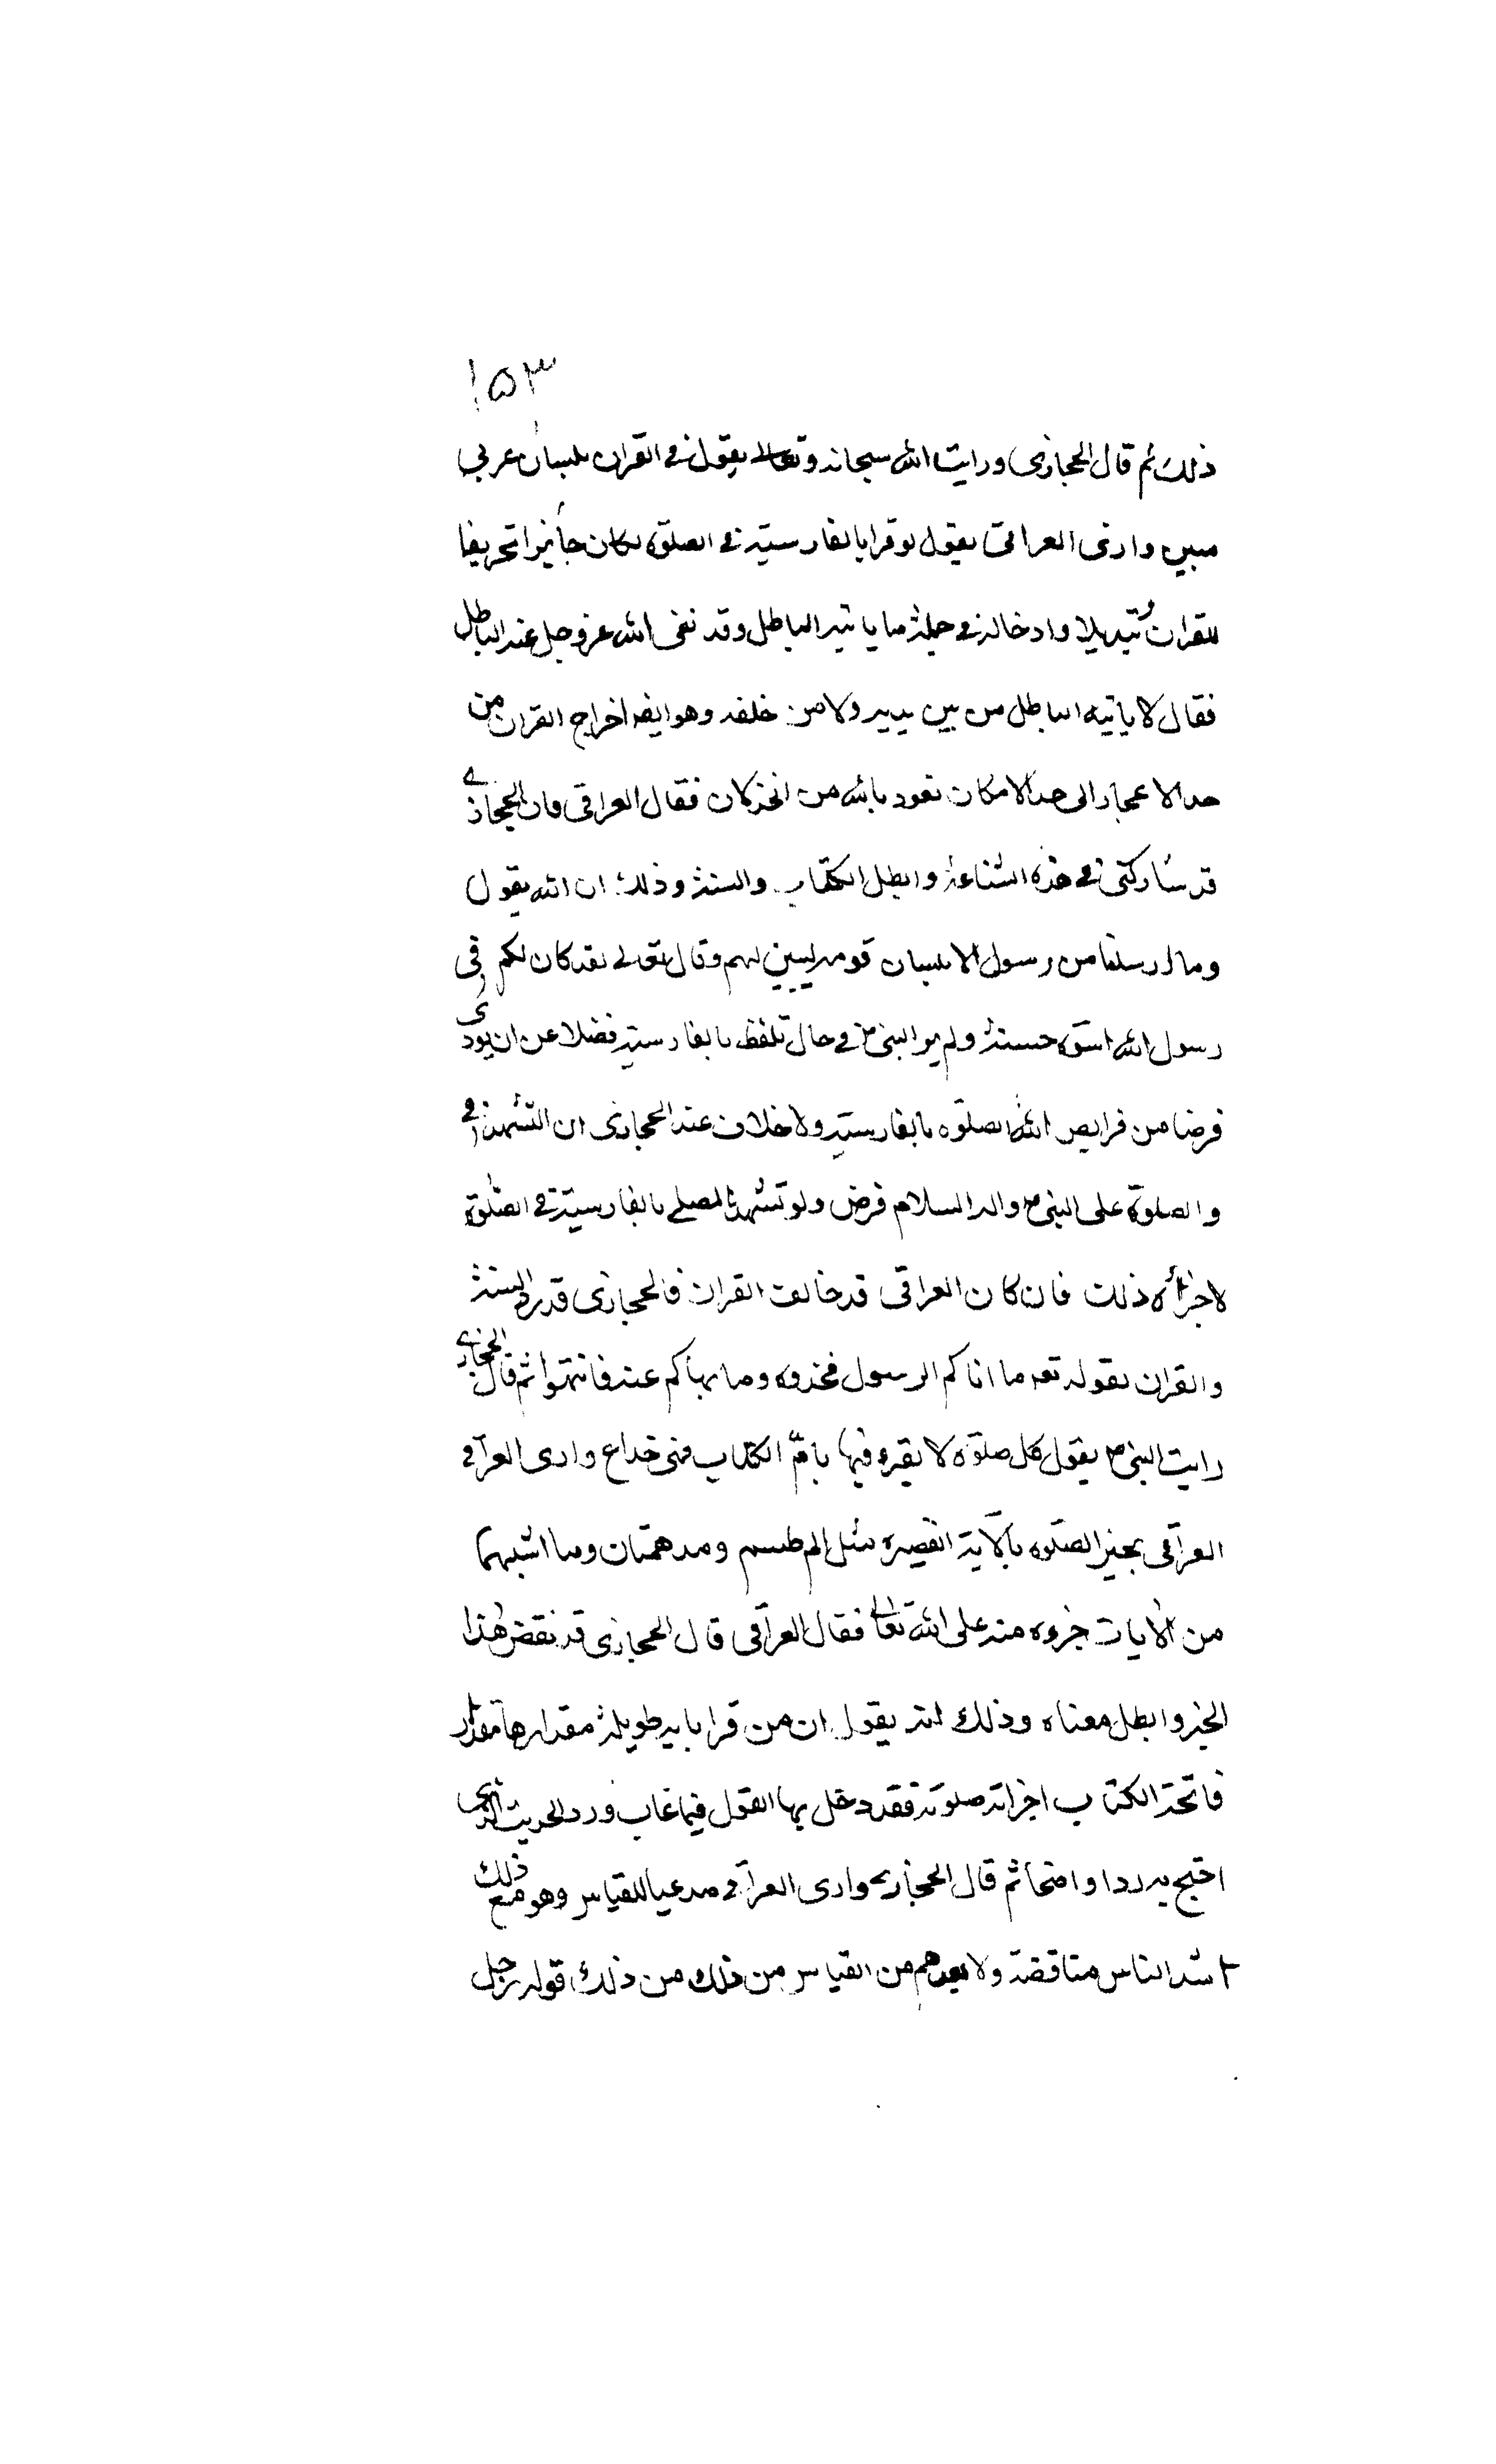 ۱۵۳
ذلك ثم قال الحجازى ورايت الله سبحانه وتعالى يقول فى القران بلسان عربي
مبين وارى العراقى يقول لو قرا بالفارسية فى الصلوة لكان جائزا تحريفا
للقران وتبديلا وادخاله فى جملة ما ياتيه الباطل وقد نفى الله عز وجل عنه الباطل
فقال لا ياتيه الباطل من بين يديه ولا من خلفه وهو ايضا اخراج القران من
حد الاعجاز الى حد الامكان نعوذ بالله من الخذلان فقال العراقى فان الحجازي
قد شاركنى فى هذه الشناعة وابطل الكتاب والسنة وذلك ان الله يقول
وما ارسلنا من رسول الا بلسان قومه ليبين لهم وقال تعالى لقد كان لكم فى
رسول الله اسوة حسنة ولم ير النبى ص فى حال تلفظ بالفارسية فضلا عن ان يودى
فرضا من فرايض الله الصلوة بالفارسية ولا خلاف عند الحجازى ان التشهد فى
والصلوة على النبى ص واله السلام فرض ولو تشهد المصلے بالفارسية فى الصلوة
لاجزأه ذلك فان كان العراقى قد خالف القران فالحجازى قد رد السنة
والقران بقوله تعه ما اتاكم الرسول فخذوه وما نهاكم عنه فانتهوا ثم قال الحجازي
رايت النبى ص يقول كل صلوة لا يقرء فيها بام الكتاب فهى خداع وارى العراقى
العراقى يجيز الصلوة بالاية القصيرة مثل الم طسم ومدهمتان وما اشبههما
من الايات جروه منه على الله تعالى فقال العراقى قال الحجازى قد نقض هذا
الخبر وابطل معناه وذلك انه يقول ان من قرا باية طويلة مقدارها مقدار
فاتحة الكتاب اجزاته صلوته فقد دخل بها القول فيما غاب ورد الحديث الذى
احتج به ردا واضحا ثم قال الحجازى وارى العراقى مدعيا للقياس وهو مع ذلك
اشد الناس مناقضة ولا بعدهم من القياس من ذلك من ذلك قوله رجل